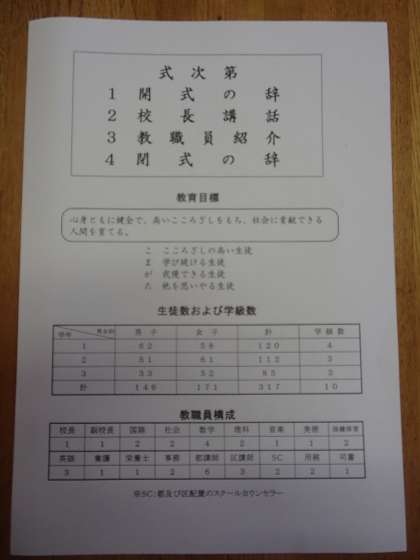 式次第
1 開式の辞
2 校長講話
3 教職員紹介
4 閉式の辞
教育目標
心身ともに健全で、高いこころざしをもち、社会に貢献できる
人間を育てる。
こ こころざしの高い生徒
ま 学び続ける生徒
が 我慢できる生徒
た 他を思いやる生徒
生徒数および学級数
学年 男女別 男子 女子 計 学級数
1 62 58 120 4
2 51 61 112 3
3 33 52 85 3
計 146 171 317 10
教職員構成
校長 副校長 国語 社会 数学 理科 音楽 美術 保健体育
1 1 2 2 4 2 1 1 2
英語 養護 栄養士 事務 都講師 区講師 SC 用務 司書
3 1 1 2 6 3 2 2 1
※SC:都及び区配置のスクールカウンセラー